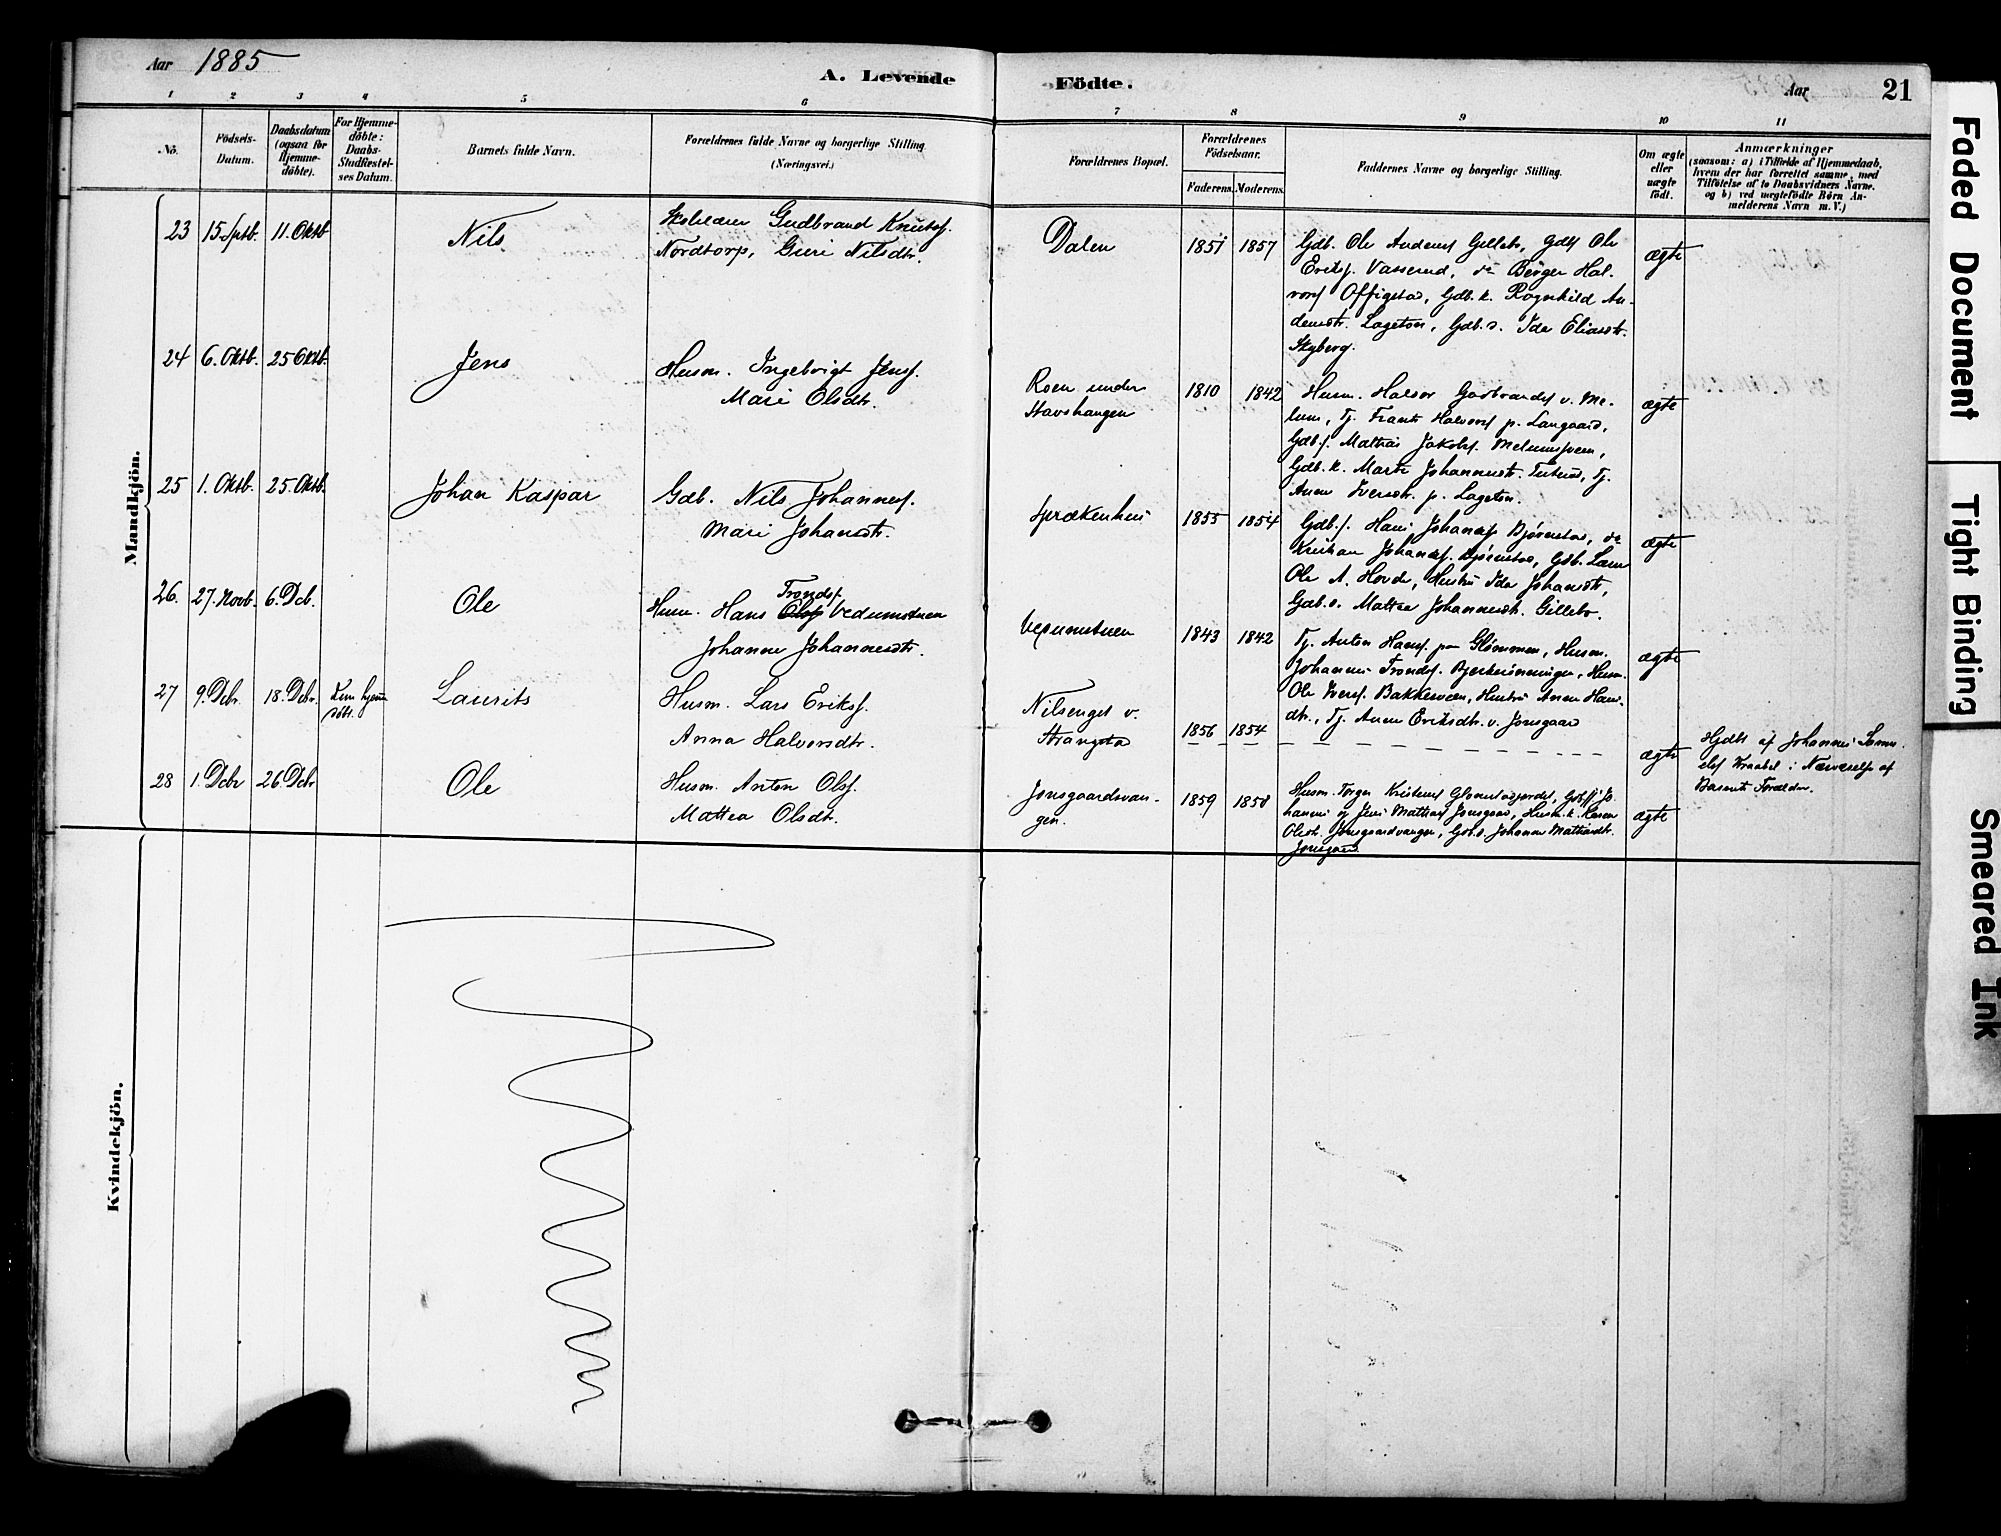 Aar 1885
A. Levende Födte.
Aar
21
1 2 3 4 5 6 7 8 9 10 11
No.
Födsels-
Datum.
Daabsdatum
(ogsaa for
Hjemme-
döbte).
For Hjemme-
döbte:
Daabs-
Stadfæstel-
ses Datum.
Barnets fulde Navn.
Forældrenes fulde Navne og borgerlige Stilling
(Næringsvei.)
Forældrenes Bopæl.
Forældrenes
Födselsaar.
Faderens. Moderens.
Faddernes Navne og borgerlige Stilling.
Om ægte
eller
uægte
født.
Anmærkninger
(saasom: a) i Tilfælde af Hjemmedaab,
hvem der har forrettet samme, med
Tilföielse af to Daabsvidners Navne,
og b) ved uægtefödte Börn An-
melderens Navn m.V.)
Mandkjön.
23 15. Sptb. 11. Oktb Nils
Gudbrand Knuts.
Nordtorp, Guri Nilsdtr.
Dalen 1851 1857
Gdb. Ole Anders Gillebo, Gdbs Ole
Eriks. Vasserud, do Börger Hal-
vors Offigstad, Gdb. k. Ragnhild An-
dersdtr. Lageton, Gdb. d. Ida Eliasdtr.
Skyberg.
ægte
24 6. Oktb. 25 Oktb. Jens
Husm. Ingebrigt Jens.
Mari Olsdtr.
Roen under
Stavshaugen
1810 1842
Husm. Halvor Gudbrands v. Me-
lum, Tj. Frants Halvors p. Langaard,
Gdb. s. Mathias Jakobs. Melumsveen,
Gdb. k. Marte Johannesdtr.
Anne Iversdtr. p. Lageton.
ægte
25 1. Oktb. 25. Oktb. Johan Kaspar
Gdb. Nils Johannes.
Mari Johansdtr.
Sprækenhus 1855 1854
Gdb. s. Hans Johans Bjørnstad, do
Kristian Johans. Bjørnstad, Gdb.
Ole A. Hovde, Hustru Ida Johansdtr,
Gdb. d. Mathea Johannesdtr. Gillebo.
ægte
26. 27. Novb. 6. Dcb. Ole
Husm. Hans Olss Tronds. Vedumstuen
Johanne Johannesdtr.
Vedumstuen 1843 1842
Tj. Anton Hans. paa Glømmen, Husm.
Johannes Tronds. Bjerkerönningen, Husm.
Ole Ivers. Bakkeveen, Hustru Anne Hans-
dtr., Tj. Anne Eriksdtr. v. Jonsgaard
ægte
27 9. Dcbr. 18. Dcbr. Kun hjemme-
döbt. Laurits
Husm. Lars Eriks.
Anna Halvorsdtr.
Nilsenget v.
Strangstad
1856 1854
ægte
Hjdbt af Johannes
Kraabøl i Nærværelse af
Barnets Forældre.
28 1. Dcbr 26. Dcbr Ole
Husm. Anton Ols.
Mathea Olsdtr.
Jonsgaardsvan-
gen.
1859 1858
Husm. Torger Kristens Glomstadjordet, Gdbs. Jo-
hannes og Jens Mathias Jonsgaard, Husm. k. Karen
Olsdtr. Jonsgaardvangen, Gdb. d. Johanne Mathiasdtr.
Jonsgaard
ægte
Kvindekjön.
Faded Document
Tight Binding
Smeared Ink